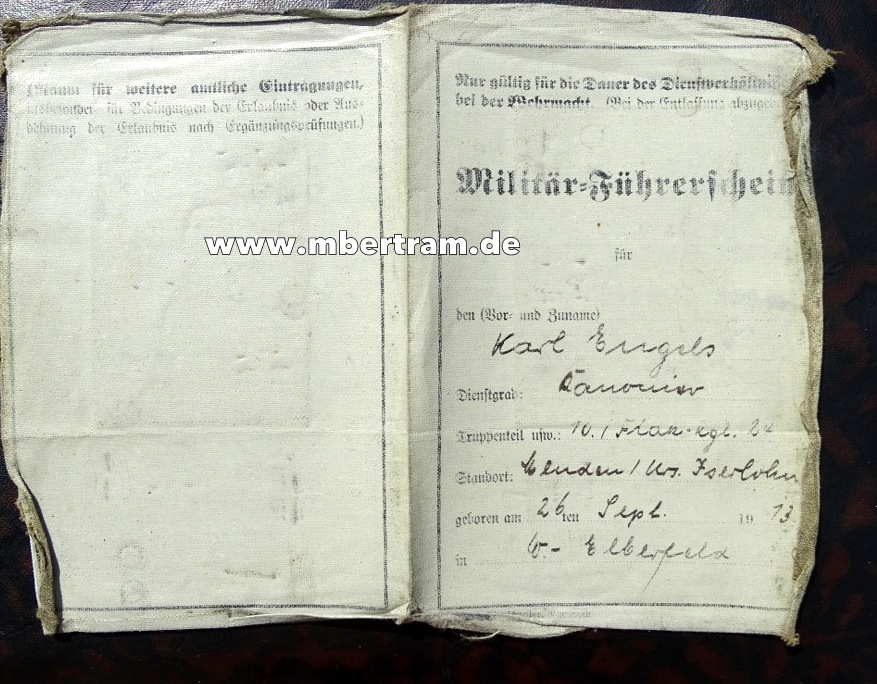 (Raum für weitere amtliche Eintragungen,
insbesondere für Bedingungen der Erlaubnis oder Aus-
dehnung der Erlaubnis nach Ergänzungsprüfungen.)
Nur gültig für die Dauer des Dienstverhältnis
bei der Wehrmacht. (Bei der Entlassung abzugeb
Militär-Führerschein
www.mbertram.de
für
den (Vor- und Zuname)
Karl Engels
Dienstgrad: Kanonier
Truppenteil usw.: 10./Flak-Rgt. 24
Standort: Menden/Krs. Iserlohn
geboren am 26ten Sept. 1913
in W.- Elberfeld